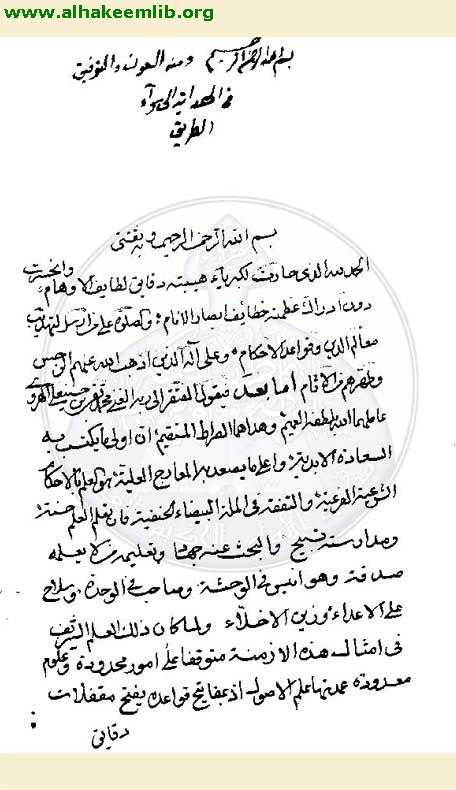 www.alhakeemlib.org
بسم الله الرحمن الرحيم ومنه العون والتوفيق
في الهداية الى سوآء
الطريق
بسم الله الرحمن الرحيم وبه ثقتي
الحمد لله الذي حارت لكبرياء هيبته دقايق لطايف الاوهام وانحسرت
دون ادراك عظمته خطايف ابصار الانام والصلوة على من ارسل لتهذيب
معالم الدين وقواعد الاحكام وعلى آله الذين اذهب الله عنهم الرجس
وطهرهم من الآثام اما بعد فيقول المفتقر الى ربه الغني محمد تقي بن حسينعلي الهروي
عاملهما الله بلطفه العميم وهداهما الصراط المستقيم ان اولى ما يكتسب به
السعادة الابدية واعلى ما يصعد به المعارج العلية هو العلم بالاحكام
الشرعية الفرعية والتفقه في الملة البيضاء الحنيفية فان تعلم العلم حسنة
ومدارسته تسبيح والبحث عنه جهاد وتعليمه من لا يعلمه
صدقة وهو انيس في الوحشة وصاحب في الوحدة وسلاح
على الاعداء وزين الاخلاء ولما كان ذلك العلم الشريف
في امثال هذه الازمنة متوقفا على امور محدودة وعلوم
معدودة عمدتها علم الاصول اذ بمفاتيح قواعده يفتح مقفلات
دقايق